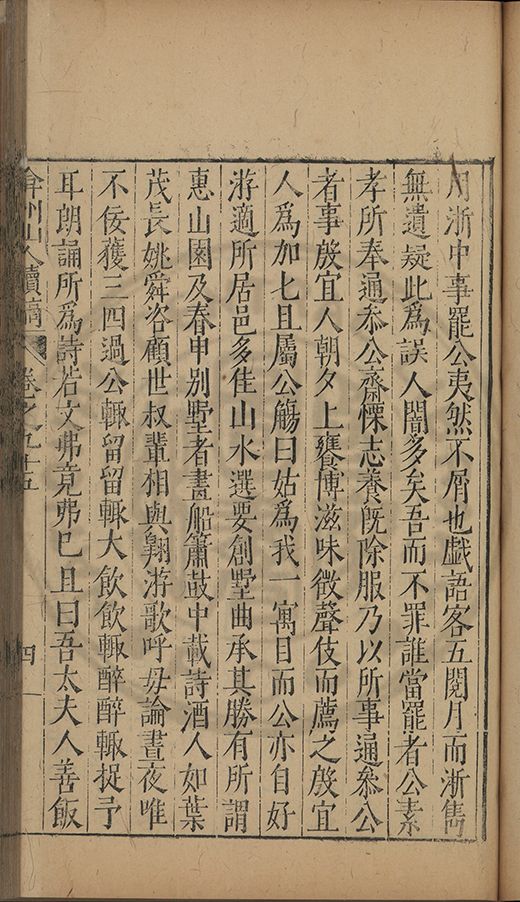 用浙中事罷公夷然不屑也戲語客五閱月而浙雋
無遺疑此爲誤人闇多矣吾而不罪誰當罷者公素
孝所奉通叅公齋慄志養旣除服乃以所事通叅公
者事殷宜人朝夕上饔博滋味徵聲伎而薦之殷宜
人爲加七且屬公觴曰姑爲我一寓目而公亦自好
游適所居邑多佳山水選要創墅曲承其勝有所謂
惠山園及春申別墅者畫船簫鼓中載詩酒人如葉
茂長姚舜咨顧世叔輩相與翺游歌呼毋論晝夜唯
不佞蒦三四過公輙留留輙大飲飲輙醉醉輙捉予
耳朗誦所爲詩若文弗竟弗巳且曰吾太夫人善飯
弇州山人續稿 卷之九十五 四